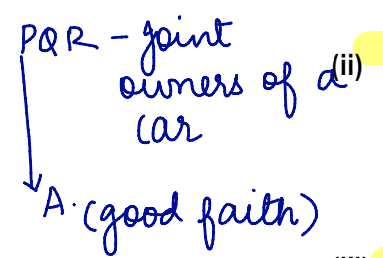 PQR - joint
owners of a (ii)
car
A. (good faith)